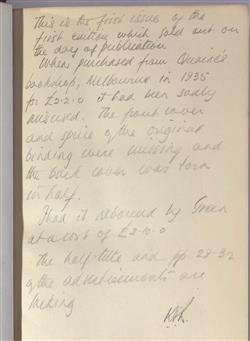 This is the first issue of the
first edition which sold out on
the day of publication.
When purchased from
bookshop, Melbourne in 1935
for £2-2-0 it had been sadly
misused. The front cover
and spine of the original
binding were missing and
the back cover was torn
in half.
I had it rebound by Green
at a cost of £2-10-0
The half-title and pp. 28-32
of the advertisements are
lacking